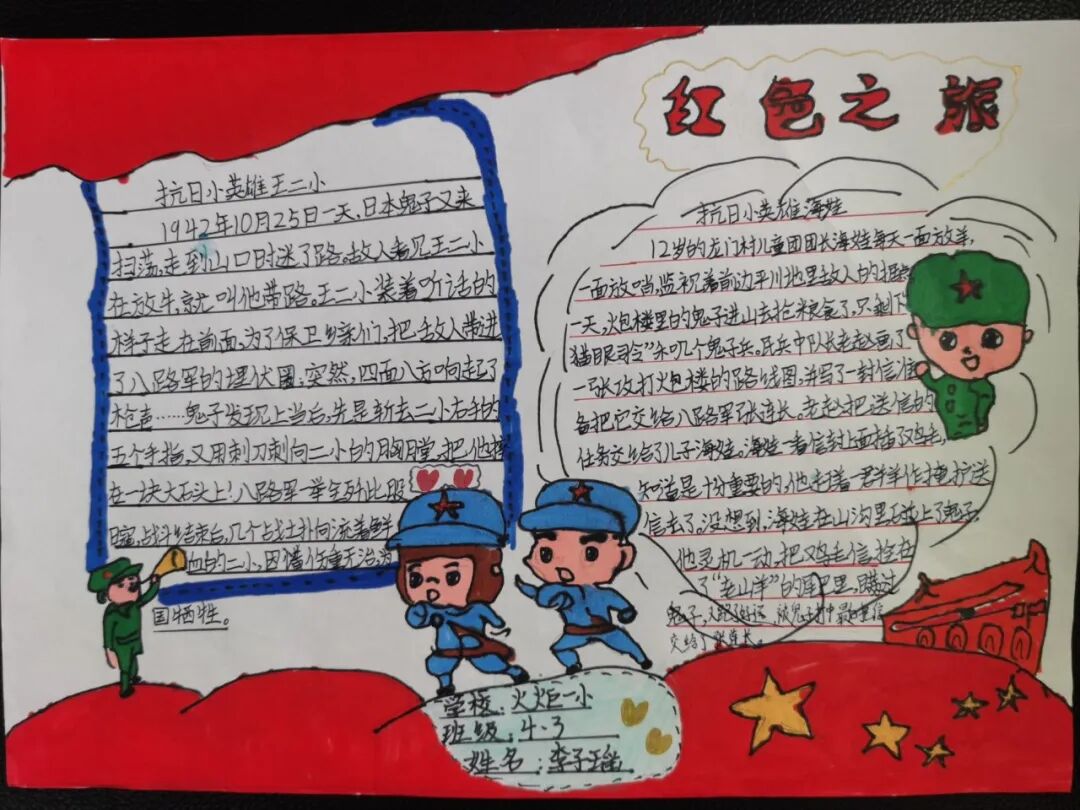 红色之旅
抗日小英雄王二小
1942年10月25日一天,日本鬼子又来
扫荡,走到山口时迷了路。敌人看见王二小
在放牛,就叫他带路。王二小装着听话的
样子走在前面,为了保卫乡亲们,把敌人带进
了八路军的埋伏圈,突然,四面八方响起了
枪声……鬼子发现上当后,先是斩去二小右手的
五个手指,又用刺刀刺向二小的胸膛,把他摔
在一块大石头上!八路军一举全歼
战斗结束后,几个战士扑向流着鲜
血的二小,因伤重无治为
国牺牲。
抗日小英雄海娃
12岁的龙门村儿童团团长海娃每天一面放羊,
一面放哨,监视着前边平川地里敌人的
一天,炮楼里的鬼子进山去抢粮食了,只剩下
猫眼司令”和几个鬼子兵。民兵中队长老赵画了
一张攻打炮楼的路线图,并写了一封信准
备把它交给八路军张连长。老赵把送信的
任务交给了儿子海娃。海娃一看信封上面插了鸡毛,
知道是十分重要的,他赶着一群羊作掩护送
信去了,没想到,海娃在山沟里碰上了鬼子,
他灵机一动,把鸡毛信拴在
了“老山羊”的尾巴里,瞒过
鬼子,
交给了张连长。
学校:火炬一小
班级:4.3
姓名:李子瑶